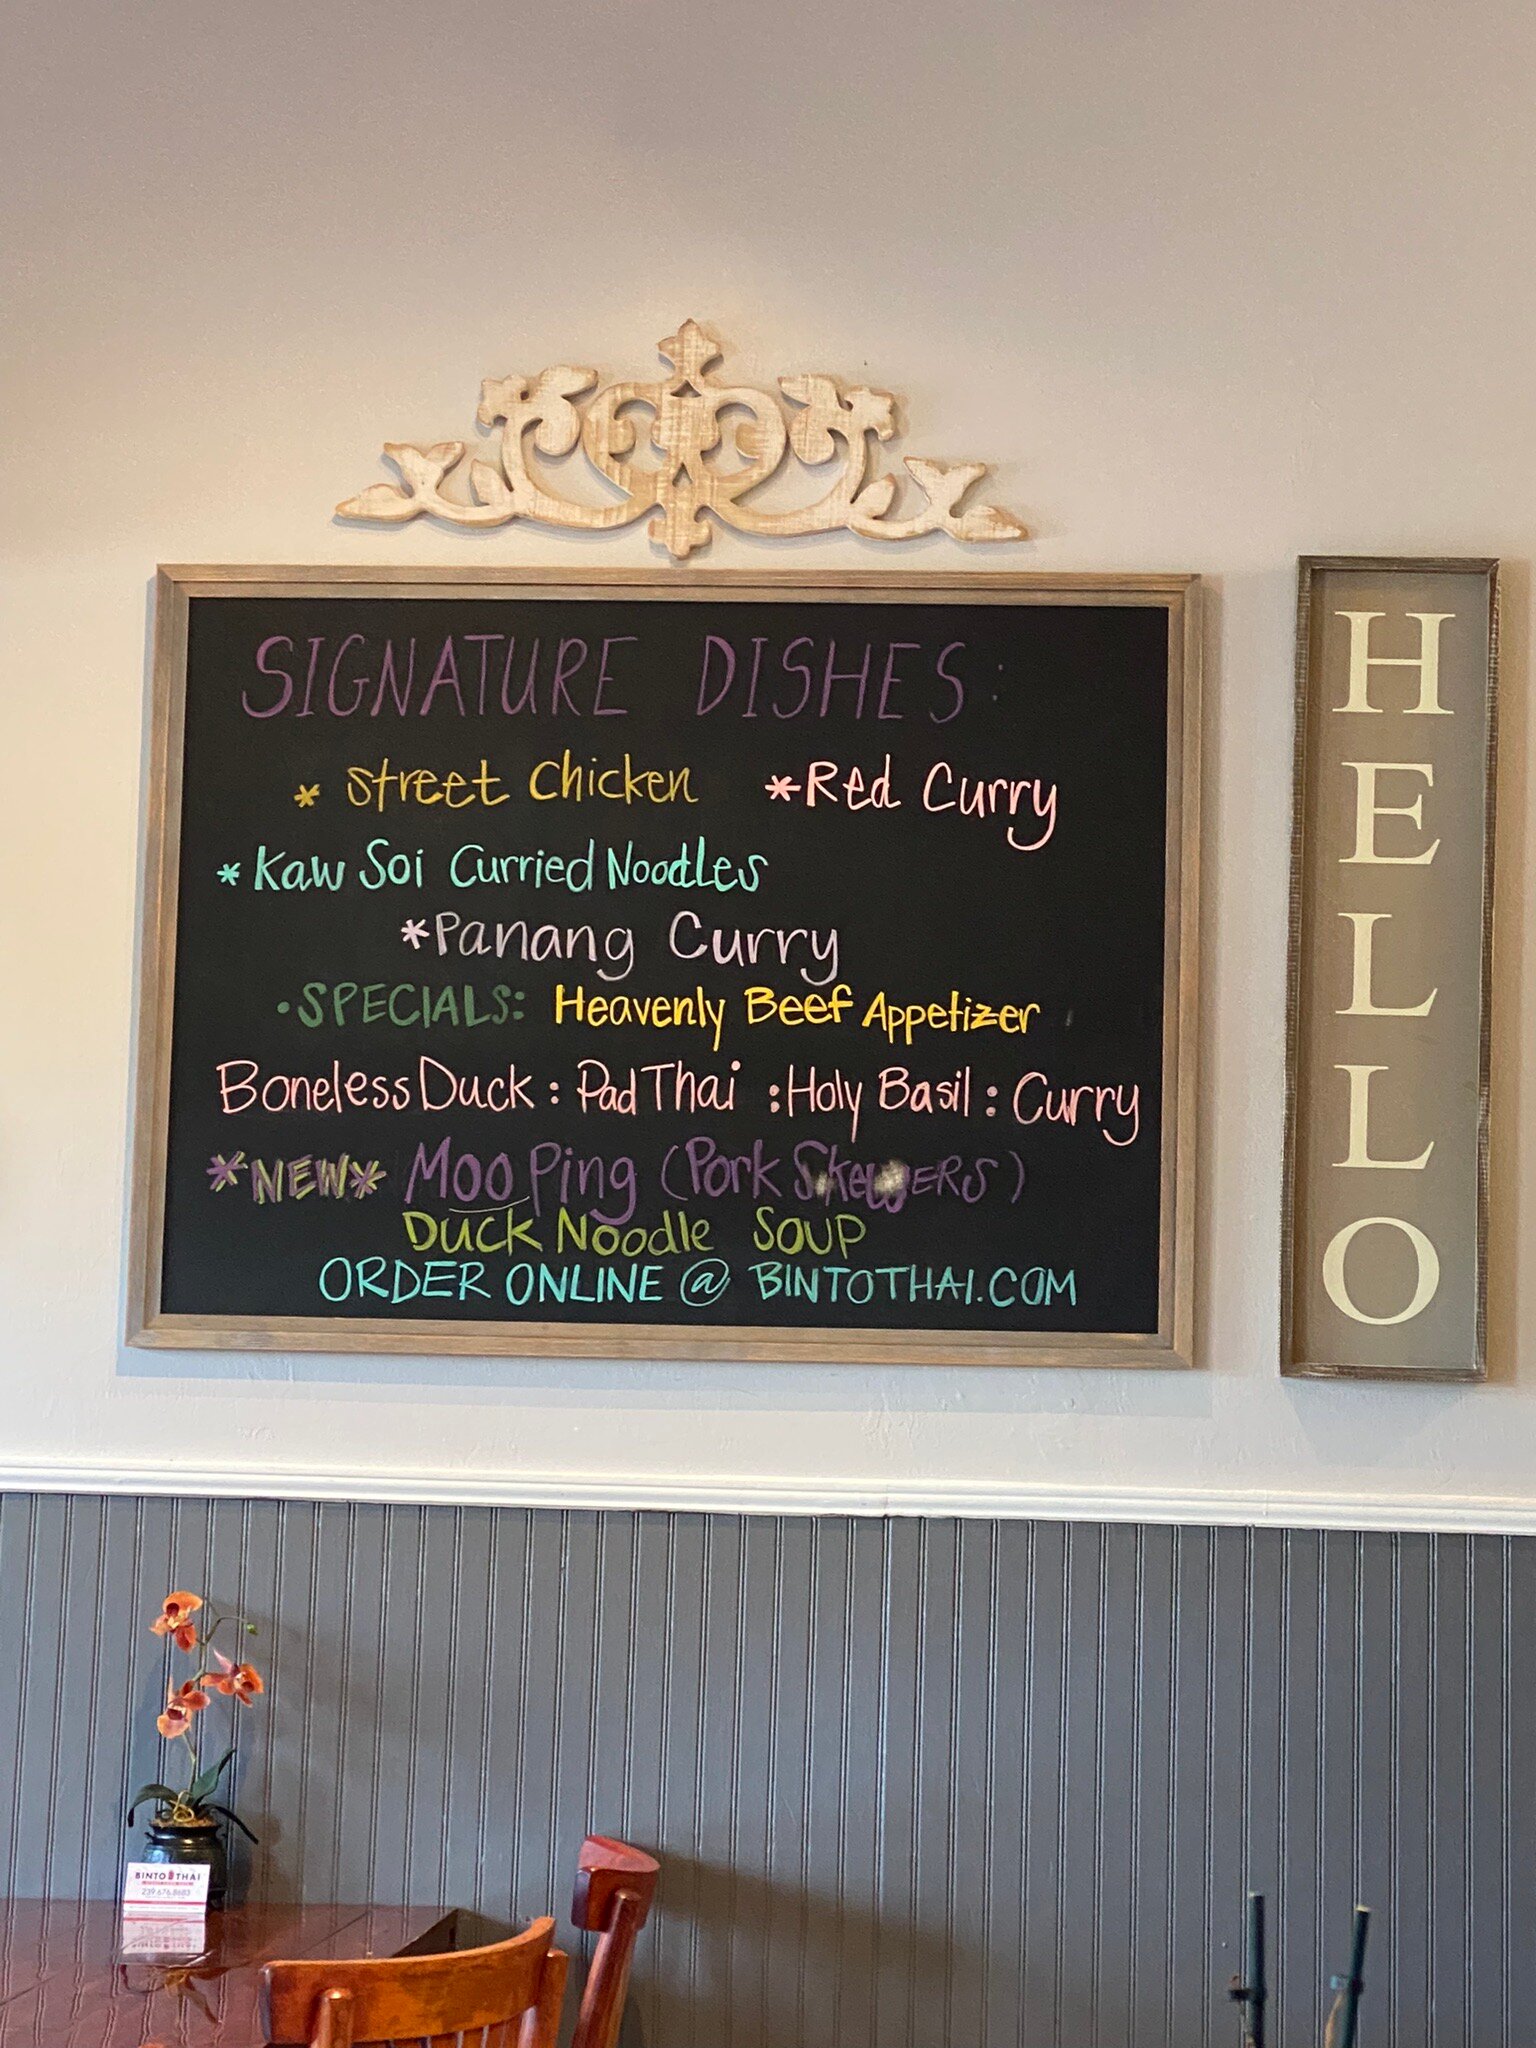 SIGNATURE DISHES:
* Street Chicken *Red Curry
* Kaw Soi Curried Noodles
*Panang Curry
•SPECIALS: Heavenly Beef Appetizer
Boneless Duck : Pad Thai : Holy Basil : Curry
*NEW* Moo Ping (Pork SkewERS)
DUCK Noodle SOUP
ORDER ONLINE @ BINTOTHAI.COM
HELLO
BINTO THAI
239.676.8683